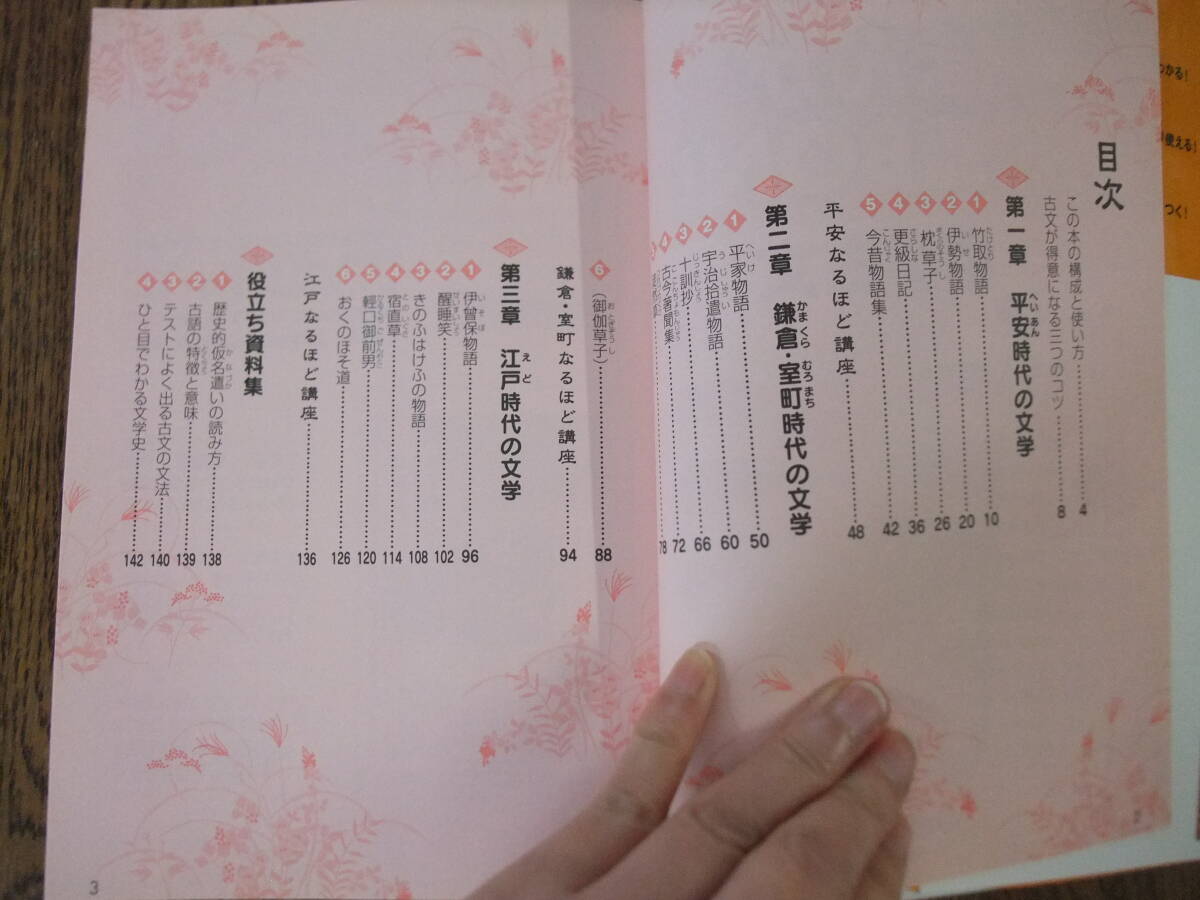 目次
この本の構成と使い方 4
古文が得意になる三つのコツ 8
第一章 平安時代の文学
1 竹取物語 10
2 伊勢物語 20
3 枕草子 26
4 更級日記 36
5 今昔物語集 42
平安なるほど講座 48
第二章 鎌倉・室町時代の文学
1 平家物語 50
2 宇治拾遺物語 60
3 十訓抄 66
4 古今著聞集 72
78
6 (御伽草子) 88
鎌倉・室町なるほど講座 94
第三章 江戸時代の文学
1 伊曾保物語 96
2 醒睡笑 102
3 きのふはけふの物語 108
4 宿直草 114
5 軽口御前男 120
6 おくのほそ道 126
江戸なるほど講座 136
役立ち資料集
1 歴史的仮名遣いの読み方 138
2 古語の特徴と意味 139
3 テストによく出る古文の文法 140
4 ひと目でわかる文学史 142
3
かる!
使える!
つく!